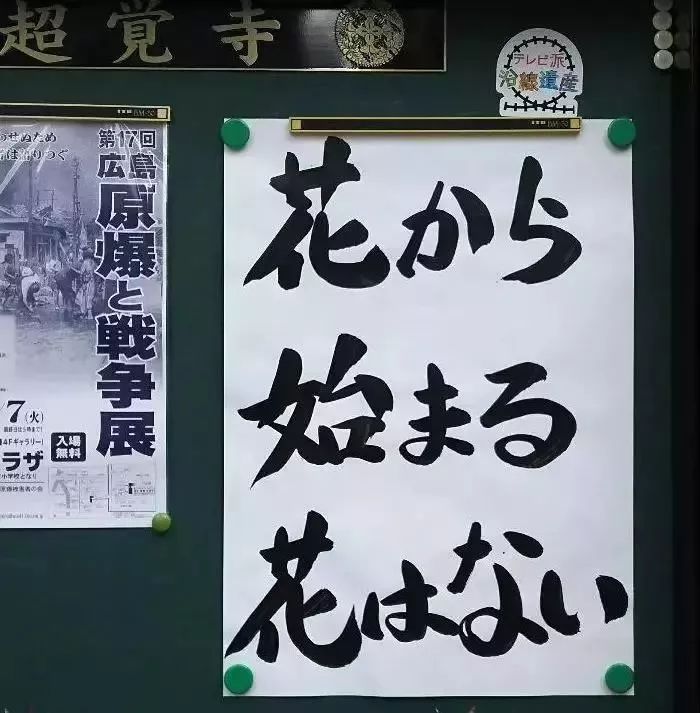 超覚寺
テレビ派
沿線遺産
花から
始まる
花はない
第17回
広島
原爆と戦争展
7(火)
4Fギャラリー)
ラザ
小学校となり
入場
無料